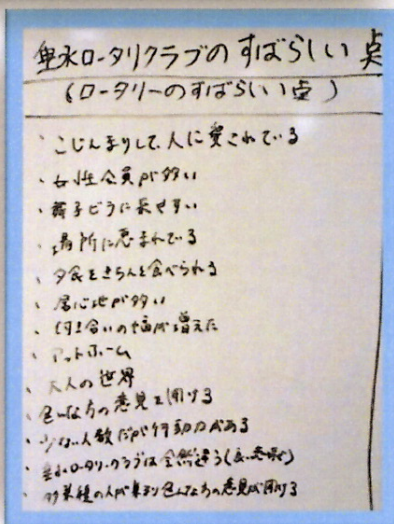 垂水ロータリクラブのすばらしい点
(ロータリーのすばらしい点)
・こじんまりして、人に愛されている
・女性会員が多い
・舞子ビラに長せすい
・場所に恵まれている
・夕食をきちんと食べられる
・居心地が多い
・付き合いの幅が増えた
・アットホーム
・大人の世界
・色んな方の意見を聞ける
・少ない人数だが行動力がある
・垂水ロータリークラブは全然違う(良い意味で)
・多業種の人が集まり色んな方の意見が聞ける